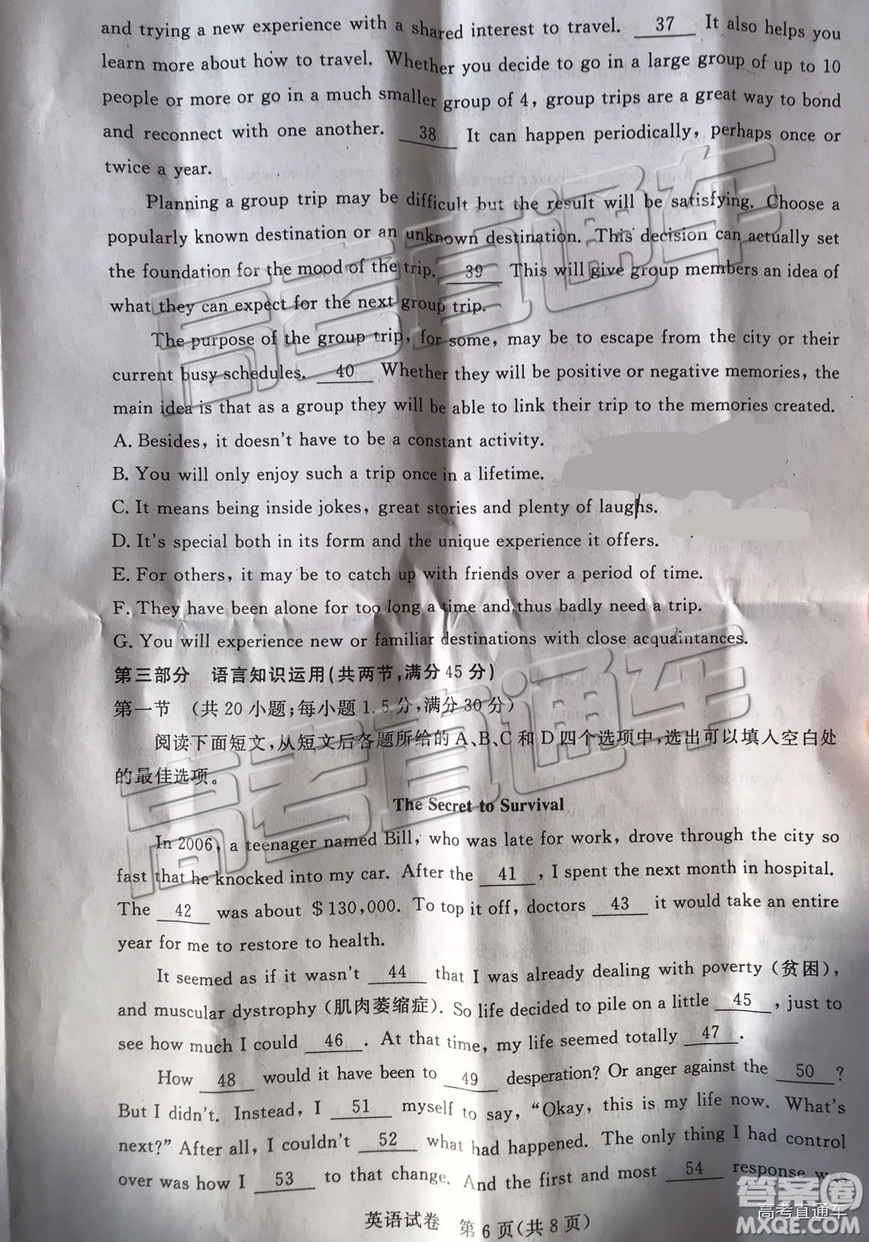 and trying a new experience with a shared interest to travel. 37 It also helps you
learn more about how to travel. Whether you decide to go in a large group of up to 10
people or more or go in a much smaller group of 4, group trips are a great way to bond
and reconnect with one another. 38 It can happen periodically, perhaps once or
twice a year.
Planning a group trip may be difficult but the result will be satisfying. Choose a
popularly known destination or an unknown destination. This decision can actually set
the foundation for the mood of the trip. 39 This will give group members an idea of
what they can expect for the next group trip.
The purpose of the group trip, for some, may be to escape from the city or their
current busy schedules. 40 Whether they will be positive or negative memories, the
main idea is that as a group they will be able to link their trip to the memories created.
A. Besides, it doesn't have to be a constant activity.
B. You will only enjoy such a trip once in a lifetime.
C. It means being inside jokes, great stories and plenty of laughs.
D. It's special both in its form and the unique experience it offers.
E. For others, it may be to catch up with friends over a period of time.
F. They have been alone for too long a time and thus badly need a trip.
G. You will experience new or familiar destinations with close acquaintances.
第三部分 语言知识运用(共两节,满分45分)
第一节 (共20小题;每小题1.5分,满分30分)
阅读下面短文,从短文后各题所给的A、B、C和D四个选项中,选出可以填入空白处
的最佳选项。
The Secret to Survival
In 2006, a teenager named Bill, who was late for work, drove through the city so
fast that he knocked into my car. After the 41 , I spent the next month in hospital.
The 42 was about $130,000. To top it off, doctors 43 it would take an entire
year for me to restore to health.
It seemed as if it wasn't 44 that I was already dealing with poverty (贫困),
and muscular dystrophy (肌肉萎缩症). So life decided to pile on a little 45 , just to
see how much I could 46 . At that time, my life seemed totally 47 .
How 48 would it have been to 49 desperation? Or anger against the 50 ?
But I didn't. Instead, I 51 myself to say, "Okay, this is my life now. What's
next?" After all, I couldn't 52 what had happened. The only thing I had control
over was how I 53 to that change. And the first and most 54 response
英语试卷 第6页(共8页)
高考直通车
高考直通车
高考直通车
答案圈
MXQE.COM